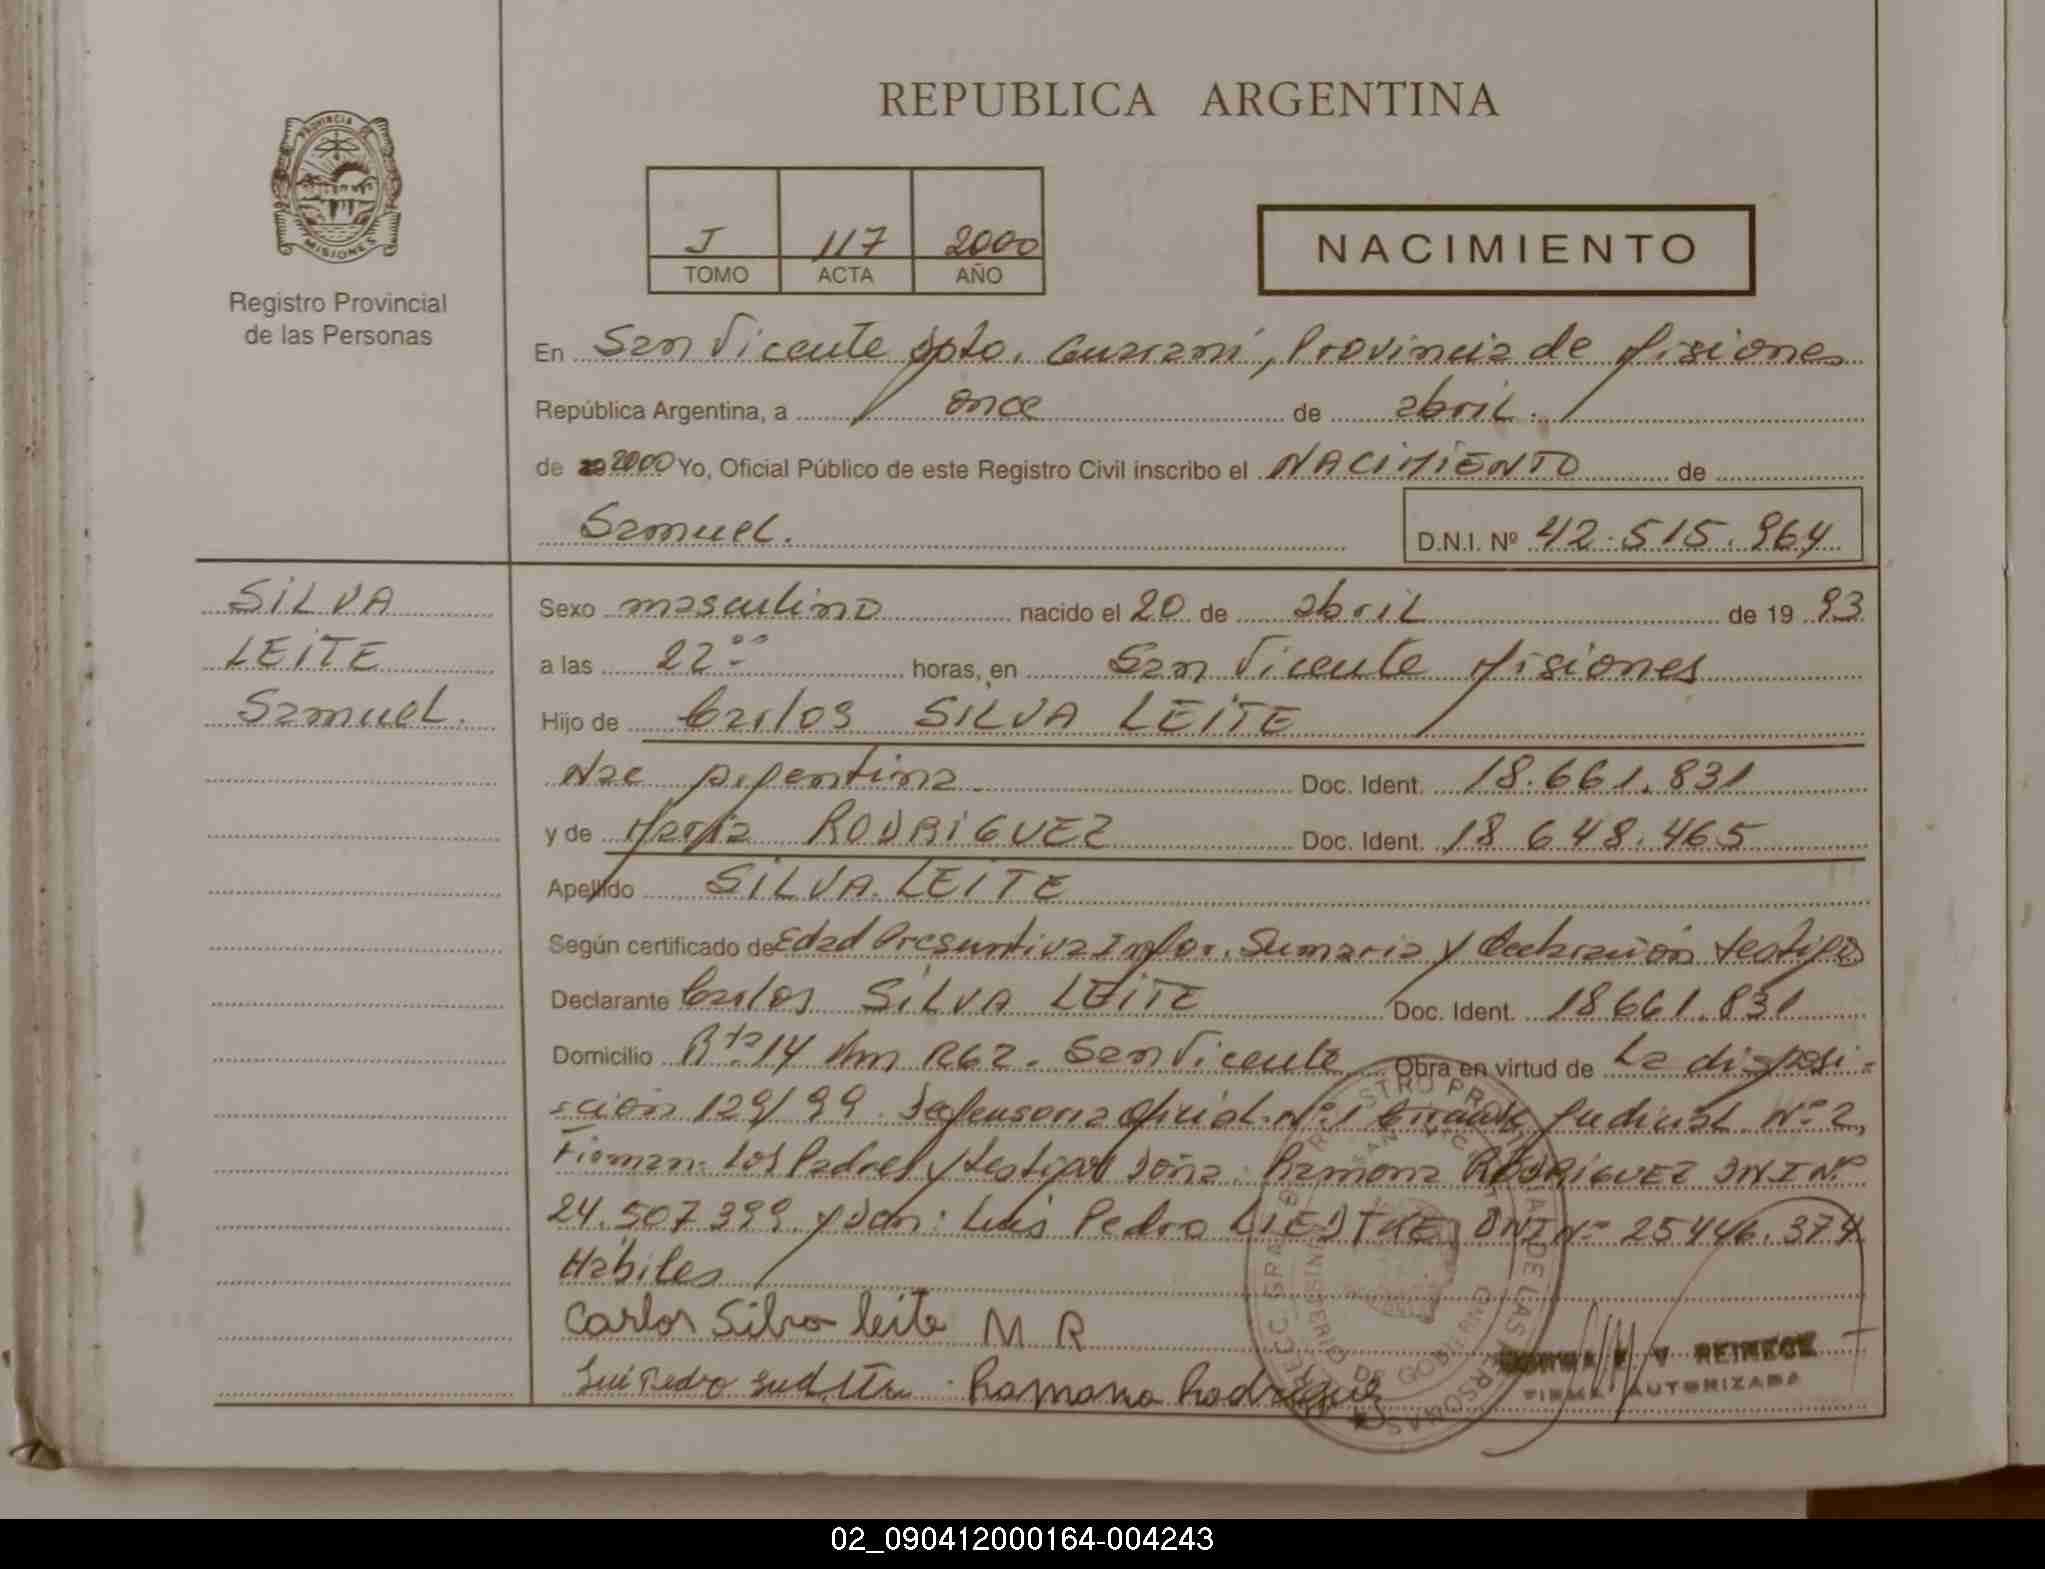 REPUBLICA ARGENTINA
PROVINCIA DE
MISIONES
Registro Provincial
de las Personas
J 117 2000
TOMO ACTA AÑO
NACIMIENTO
En San Vicente Dpto. Guaraní, Provincia de Misiones
República Argentina, a once de abril.
de 2000 Yo, Oficial Público de este Registro Civil inscribo el NACIMIENTO de
Samuel.
D.N.I. Nº 42.515.964
SILVA
LEITE
Samuel.
Sexo masculino nacido el 20 de abril de 19 93
a las 22 00 horas, en San Vicente Misiones
Hijo de Carlos SILVA LEITE
Nac argentina. Doc. Ident. 18.661.831
y de María RODRIGUEZ Doc. Ident. 18 648.465
Apellido SILVA LEITE
Según certificado de Edad Presuntiva Infor. Sumaria y declaración testigos
Declarante Carlos SILVA LEITE Doc. Ident. 18661.831
Domicilio Rta 14 Km 1262. San Vicente Obra en virtud de La disposi-
-ción 129/99 Defensoria Oficial Nº 1 Judicial Nº 2,
Firman: Los Padres y testigos Doña: Ramona RODRIGUEZ DNI Nº
24.507 399 y Don: Luis Pedro DNI Nº 25446.374
Hábiles
Carlos Silva leite M R
Luis Pedro Ramona Rodriguez
REINECK
FIRMA AUTORIZADA
MINISTERIO DE GOBIERNO
02_090412000164-004243